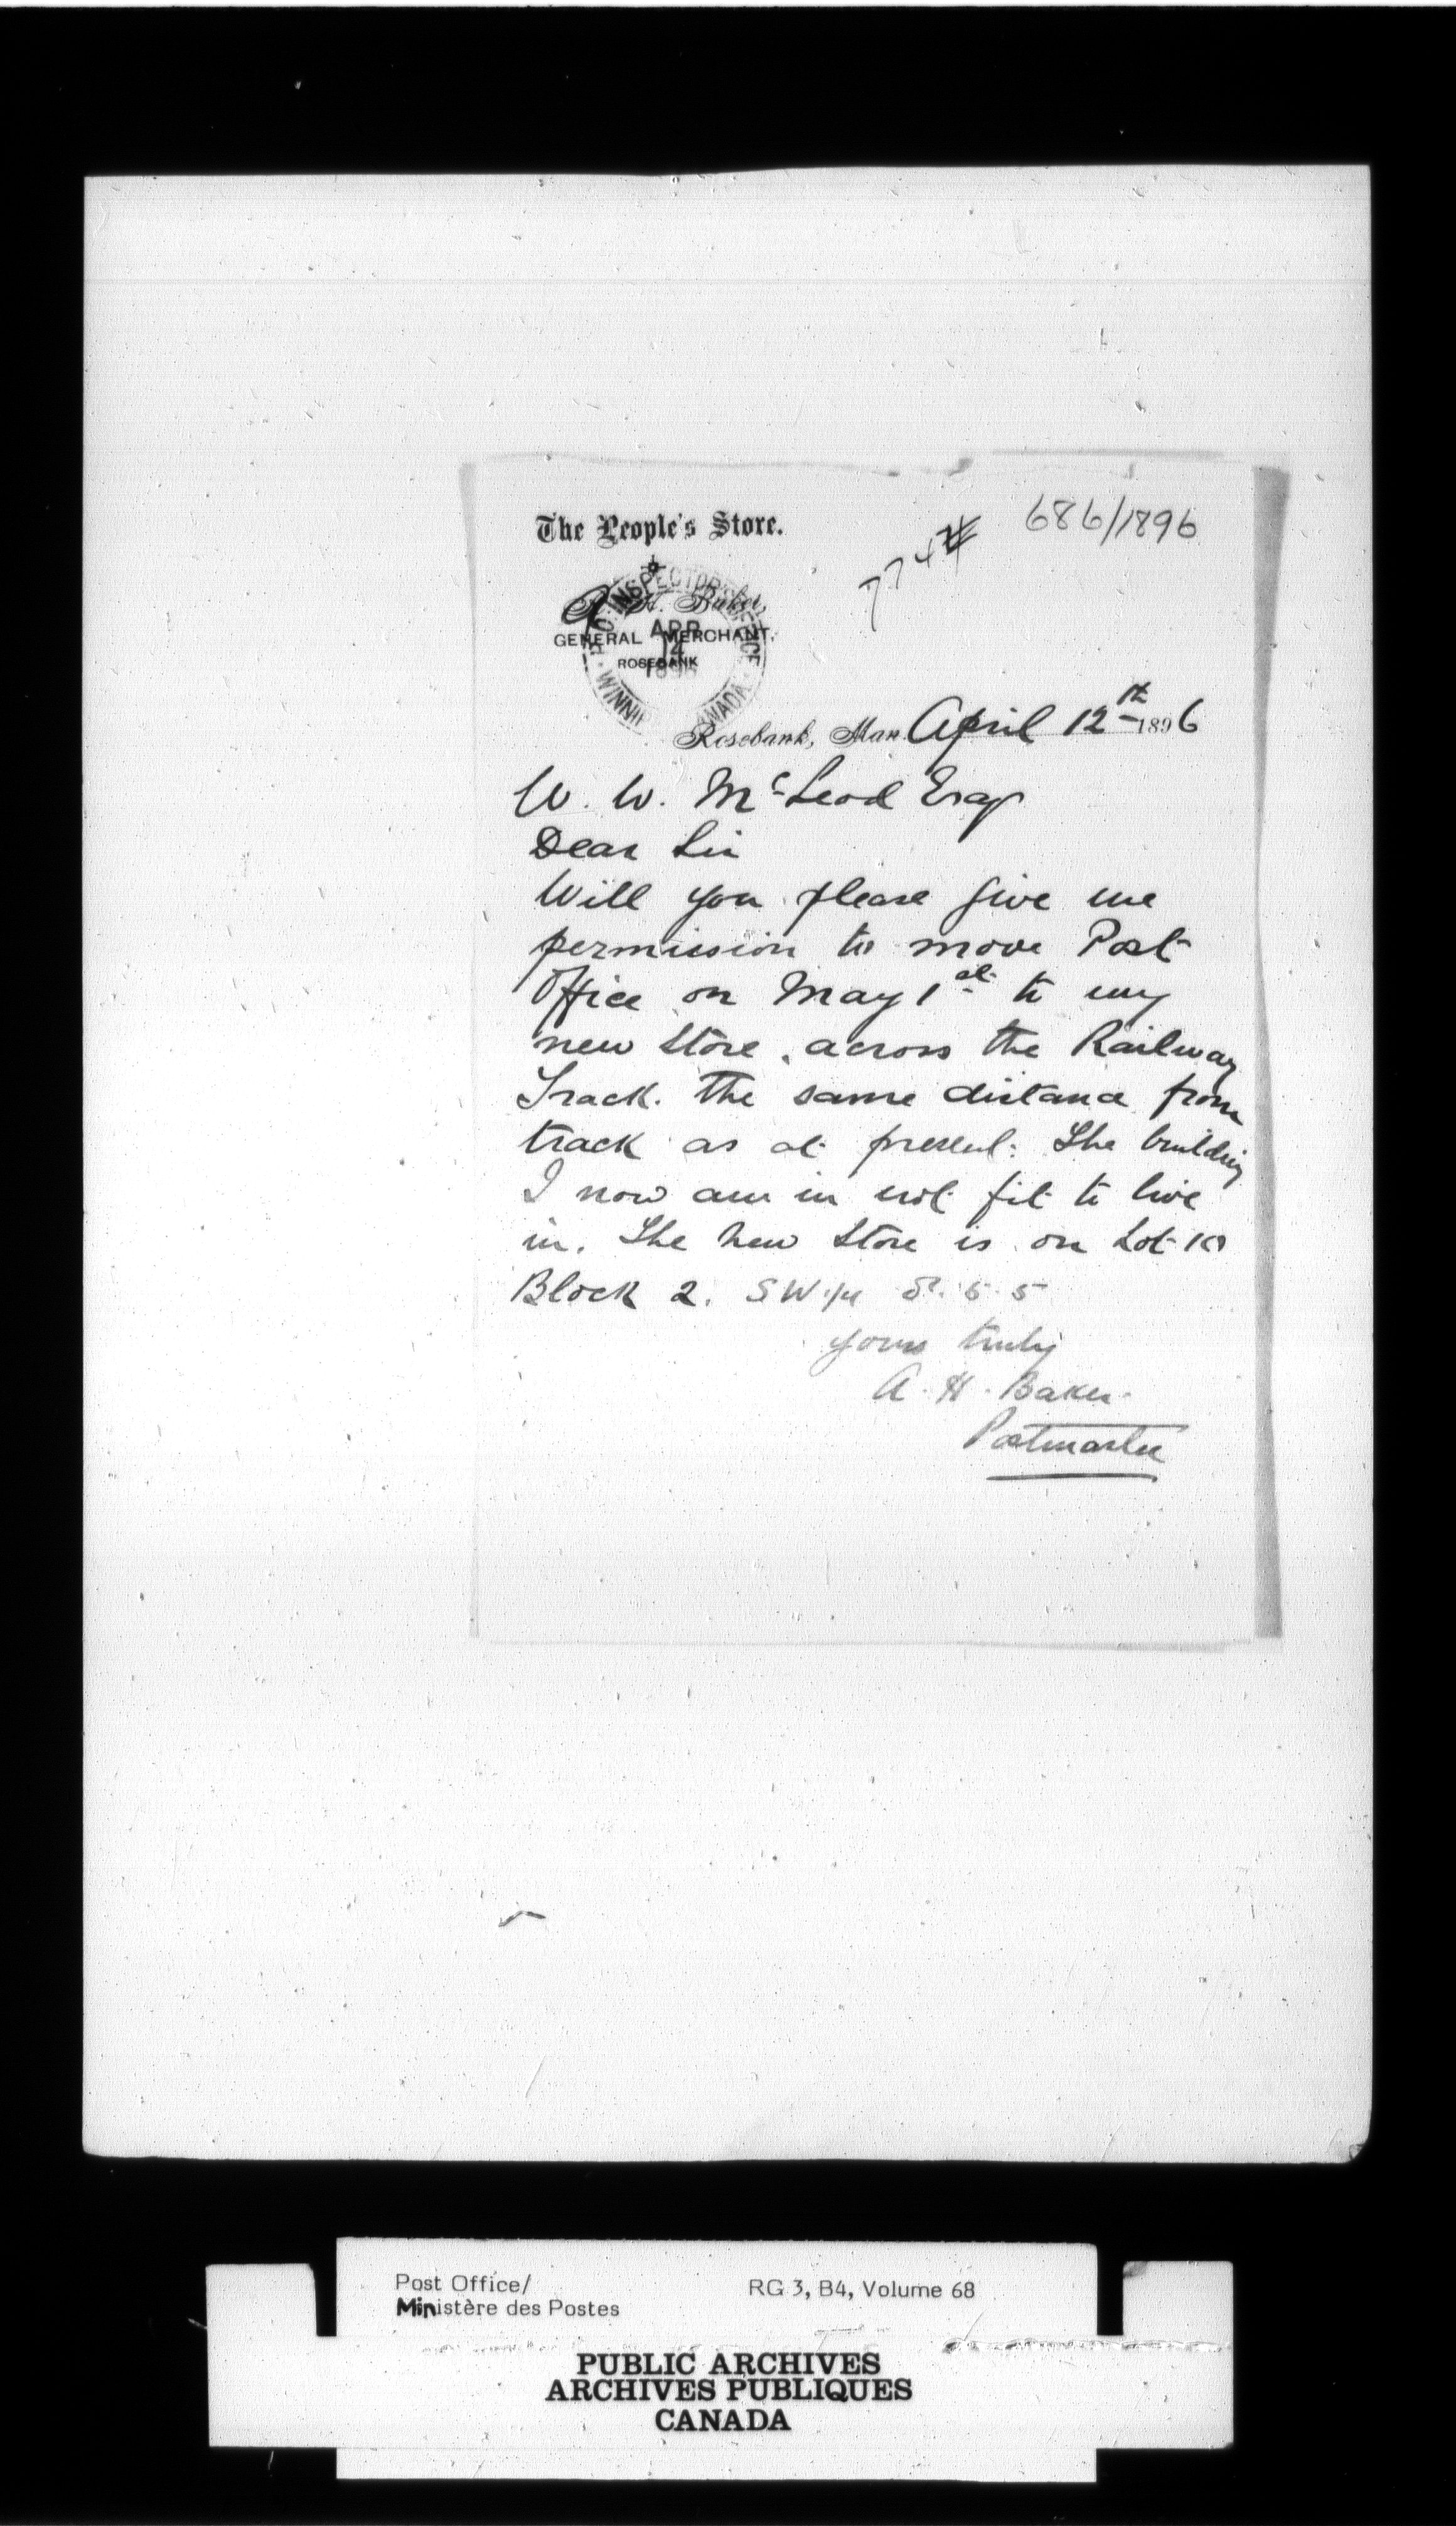 The People's Store.
774
686/1896
A. H. Baker,
GENERAL MERCHANT,
ROSEBANK
P.O. INSPECTOR'S OFFICE
APR
14
1896
WINNIP CANADA
Rosebank, Man. April 12th 1896
W. W. McLeod Esq
Dear Sir
Will you please give me
permission to move Post
Office on May 1st to my
new Store, across the Railway
Track. The same distance from
track as at present. The building
I now am in not fit to live
in. The New Store is on Lot 10
Block 2. SW 1/4 5. 5
yours truly
A. H. Baker
Postmaster
Post Office/
Ministère des Postes
RG 3, B4, Volume 68
PUBLIC ARCHIVES
ARCHIVES PUBLIQUES
CANADA